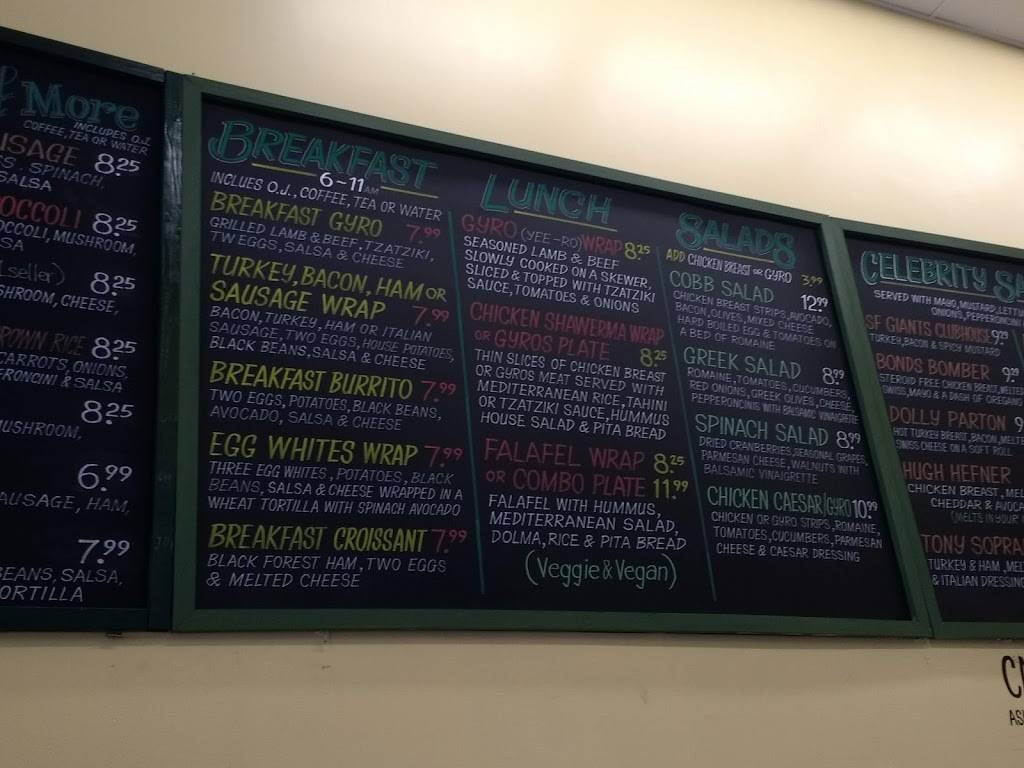 More
INCLUDES O.J.
COFFEE, TEA OR WATER
8.25
SPINACH,
SALSA
8.25
MUSHROOM,
8.25
CHEESE,
BROWN RICE 8.25
CARROTS, ONIONS,
& SALSA
8.25
MUSHROOM,
6.99
HAM,
7.99
BEANS, SALSA,
TORTILLA
BREAKFAST
6-11 AM
INCLUES O.J., COFFEE, TEA OR WATER
BREAKFAST GYRO 7.99
GRILLED LAMB & BEEF, TZATZIKI,
TW EGGS, SALSA & CHEESE
TURKEY, BACON, HAM OR
SAUSAGE WRAP 7.99
BACON, TURKEY, HAM OR ITALIAN
SAUSAGE, TWO EGGS, HOUSE POTATOES,
BLACK BEANS, SALSA & CHEESE
BREAKFAST BURRITO 7.99
TWO EGGS, POTATOES, BLACK BEANS,
AVOCADO, SALSA & CHEESE
EGG WHITES WRAP 7.99
THREE EGG WHITES, POTATOES, BLACK
BEANS, SALSA & CHEESE WRAPPED IN A
WHEAT TORTILLA WITH SPINACH AVOCADO
BREAKFAST CROISSANT 7.99
BLACK FOREST HAM, TWO EGGS
& MELTED CHEESE
LUNCH
GYRO (YEE-RO) WRAP 8.25
SEASONED LAMB & BEEF
SLOWLY COOKED ON A SKEWER,
SLICED & TOPPED WITH TZATZIKI
SAUCE, TOMATOES & ONIONS
CHICKEN SHAWERMA WRAP
OR GYROS PLATE 8.25
THIN SLICES OF CHICKEN BREAST
OR GYROS MEAT SERVED WITH
MEDITERRANEAN RICE, TAHINI
OR TZATZIKI SAUCE, HUMMUS
HOUSE SALAD & PITA BREAD
FALAFEL WRAP 8.25
OR COMBO PLATE 11.99
FALAFEL WITH HUMMUS,
MEDITERRANEAN SALAD,
DOLMA, RICE & PITA BREAD
(Veggie & Vegan)
SALADS
ADD CHICKEN BREAST OR GYRO 3.99
COBB SALAD 12.99
CHICKEN BREAST STRIPS, AVOCADO,
BACON, OLIVES, MIXED CHEESE
HARD BOILED EGG & TOMATOES ON
A BED OF ROMAINE
GREEK SALAD 8.99
ROMAINE, TOMATOES, CUCUMBERS,
RED ONIONS, GREEK OLIVES, CHEESE,
PEPPERONCINIS WITH BALSAMIC VINAIGRETTE
SPINACH SALAD 8.99
DRIED CRANBERRIES, SEASONAL GRAPES,
PARMESAN CHEESE, WALNUTS WITH
BALSAMIC VINAIGRETTE
CHICKEN CAESAR/GYRO 10.99
CHICKEN OR GYRO STRIPS, ROMAINE,
TOMATOES, CUCUMBERS, PARMESAN
CHEESE & CAESAR DRESSING
CELEBRITY
SERVED WITH MAYO, MUSTARD,
ONIONS,
SF GIANTS CLUBHOUSE 9.99
TURKEY, BACON & SPICY MUSTARD
BONDS BOMBER
STEROID FREE CHICKEN BREAST,
SWISS, MAYO & A DASH OF OREGANO
DOLLY PARTON
HOT TURKEY BREAST, BACON,
SWISS CHEESE ON A SOFT ROLL
HUGH HEFNER
CHICKEN BREAST,
CHEDDAR &
(MELTS IN YOUR
TONY
TURKEY & HAM,
& ITALIAN DRESSING